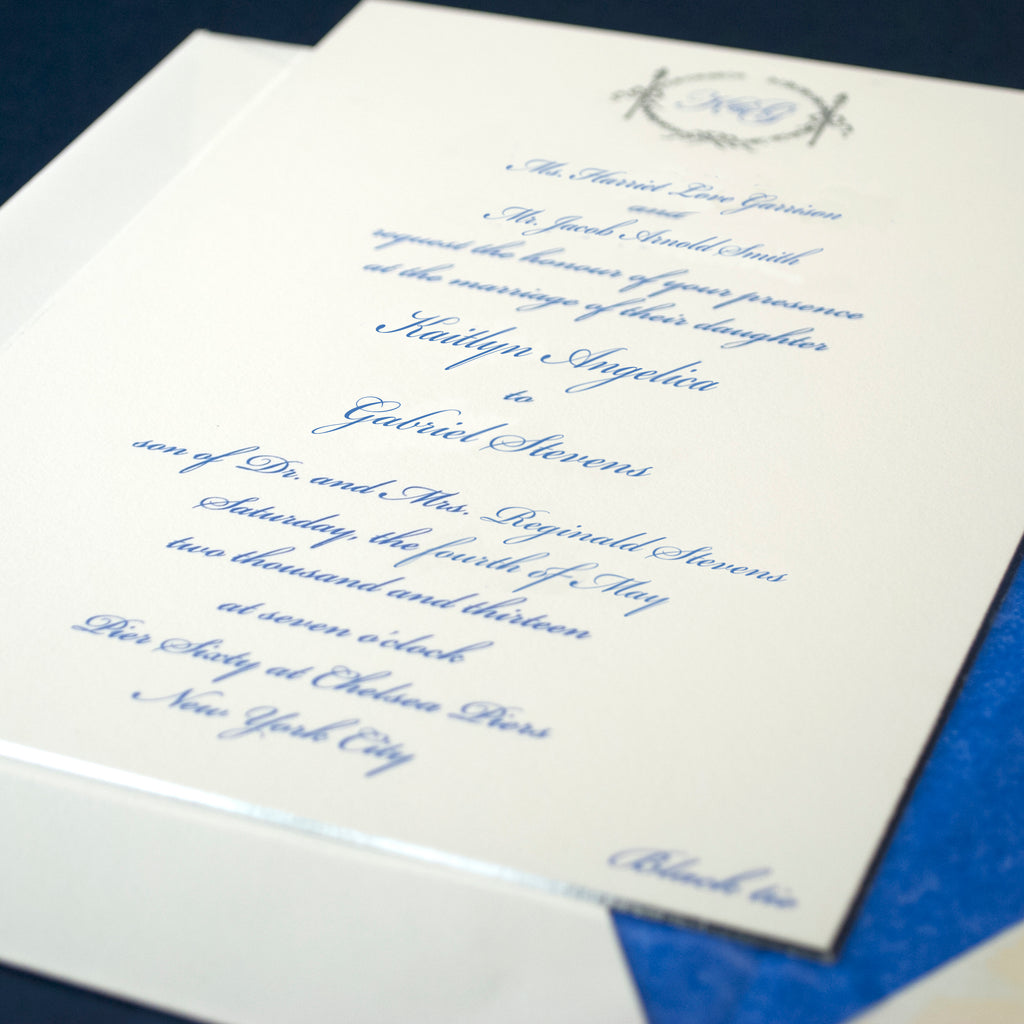 K&G
Ms. Harriet Love Garrison
and
Mr. Jacob Arnold Smith
request the honour of your presence
at the marriage of their daughter
Kaitlyn Angelica
to
Gabriel Stevens
son of Dr. and Mrs. Reginald Stevens
Saturday, the fourth of May
two thousand and thirteen
at seven o'clock
Pier Sixty at Chelsea Piers
New York City
Black tie